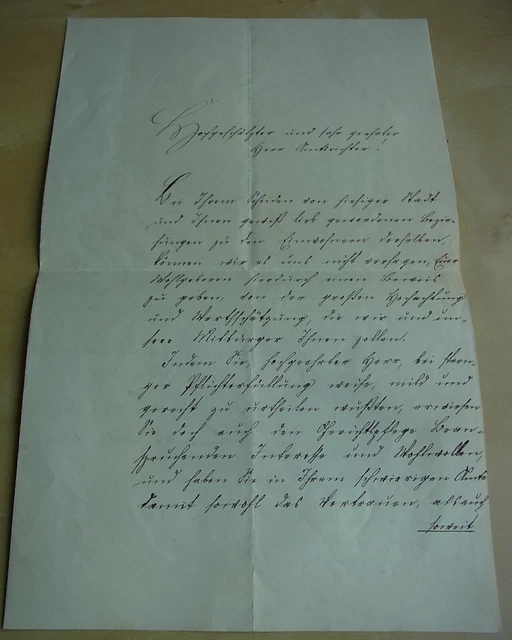 Hochgeschätzter und sehr geehrter
Herr Amtsrichter!
Bei Ihrem Scheiden von hiesiger Stadt
und Ihnen gewiß lieb gewordenen Bezie-
hungen zu den Einwohnern derselben,
können wir es uns nicht versagen, Euer
Wohlgeboren hierdurch einen Beweis
zu geben, von der großen Hochachtung
und Werthschätzung, die wir und un-
sere Mitbürger Ihnen zollen.
Indem Sie, hochgeehrter Herr, bei stren-
ger Pflichterfüllung weise, mild und
gerecht zu urtheilen wußten, erwiesen
Sie doch auch den Gerichtspflege Bean-
spruchenden Interesse und Wohlwollen,
und haben Sie in Ihrem schwierigen Amte
damit sowohl das Vertrauen, als auch
soweit